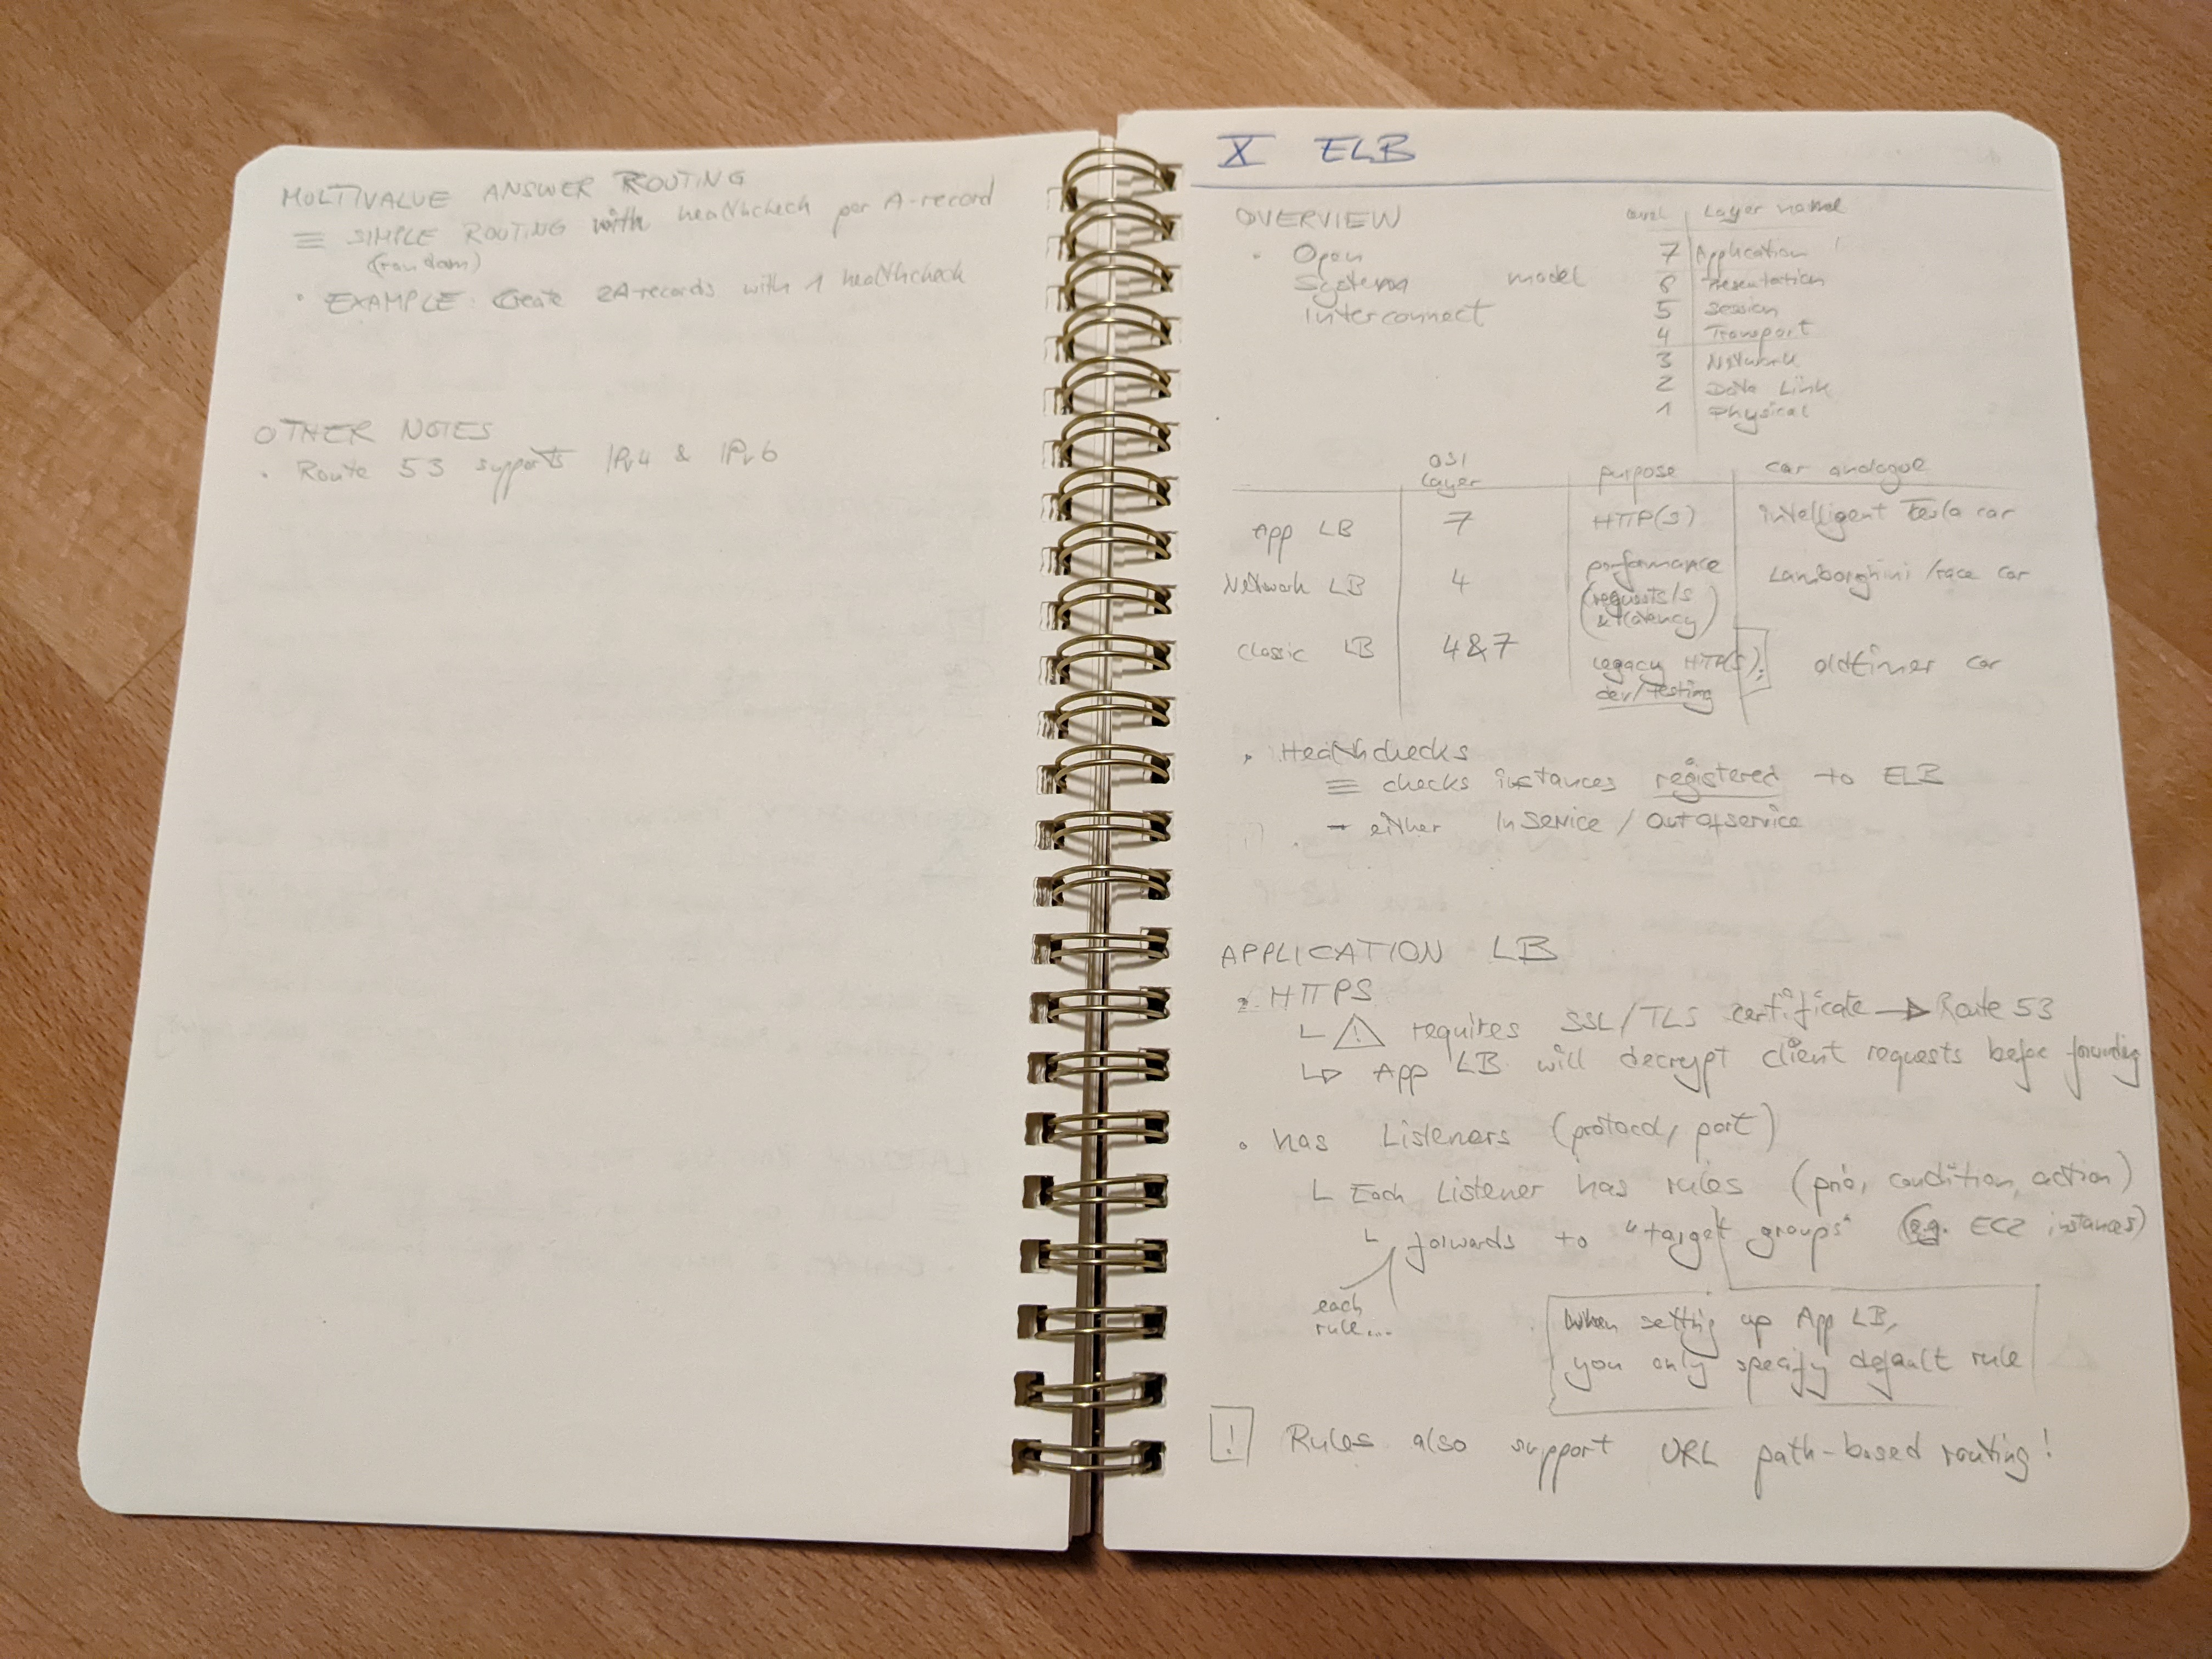 MULTIVALUE ANSWER ROUTING
≡ SIMPLE ROUTING with healthcheck per A-record
(random)
• EXAMPLE: Create 2A-records with 1 healthcheck
OTHER NOTES
• Route 53 supports IPv4 & IPv6
X ELB
OVERVIEW
• Open
Systems model
Interconnect
Layer name
7 Application
6 Presentation
5 Session
4 Transport
3 Network
2 Data Link
1 Physical
OSI layer purpose car analogue
App LB 7 HTTP(S) intelligent Tesla car
Network LB 4 performance (requests/s & latency) Lamborghini / race car
Classic LB 4&7 legacy HTTP(S); dev/testing oldtimer car
• Healthchecks
≡ checks instances registered to ELB
- either InService / OutofService
APPLICATION LB
• HTTPS
└ ⚠ requires SSL/TLS certificate → Route 53
└▷ App LB will decrypt client requests before forwarding
• has Listeners (protocol, port)
└ Each Listener has rules (prio, condition, action)
└ forwards to "target groups" (e.g. EC2 instances)
each
rule...
When setting up App LB,
you only specify default rule
! Rules also support URL path-based routing!